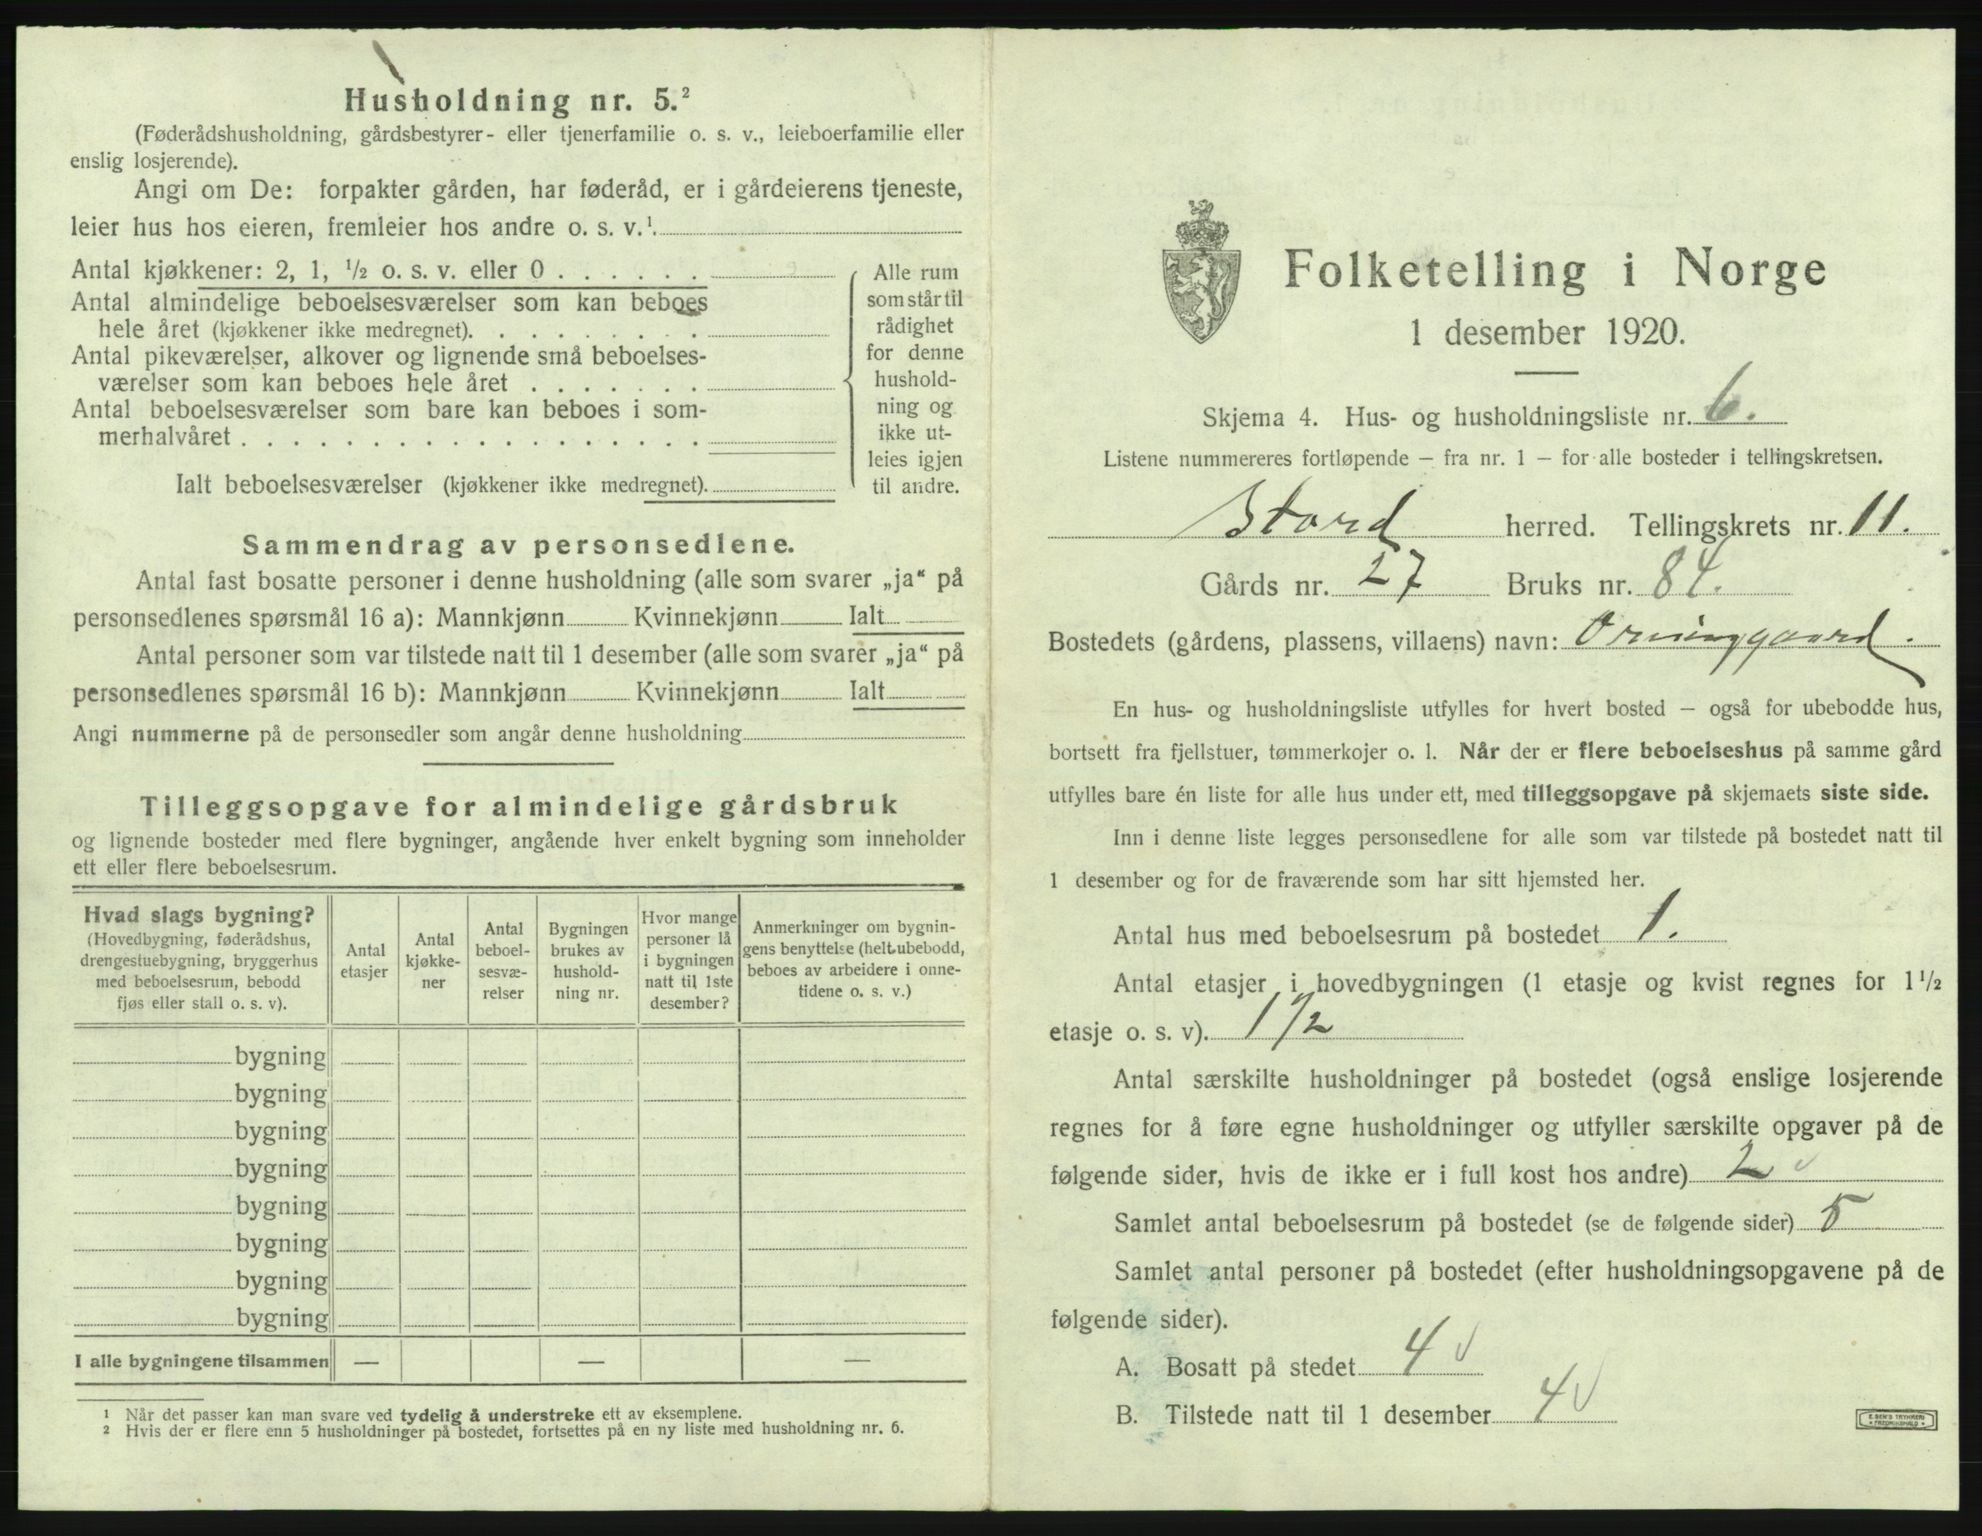 Husholdning nr. 5.²
(Føderådshusholdning, gårdsbestyrer- eller tjenerfamilie o. s. v., leieboerfamilie eller
enslig losjerende).
Angi om De: forpakter gården, har føderåd, er i gårdeierens tjeneste,
leier hus hos eieren, fremleier hos andre o. s. v.¹.
Antal kjøkkener: 2, 1, ½ o. s. v. eller 0 . . . . . .
Antal almindelige beboelsesværelser som kan beboes
hele året (kjøkkener ikke medregnet). . . . . . . . .
Antal pikeværelser, alkover og lignende små beboelses-
værelser som kan beboes hele året . . . . . . .
Antal beboelsesværelser som bare kan beboes i som-
merhalvåret . . . . . . . . . . . . . . . . . .
Ialt beboelsesværelser (kjøkkener ikke medregnet).
Alle rum
som står til
rådighet
for denne
hushold-
ning og
ikke ut-
leies igjen
til andre.
Sammendrag av personsedlene.
Antal fast bosatte personer i denne husholdning (alle som svarer „ja“ på
personsedlenes spørsmål 16 a): Mannkjønn Kvinnekjønn Ialt
Antal personer som var tilstede natt til 1 desember (alle som svarer „ja“ på
personsedlenes spørsmål 16 b): Mannkjønn Kvinnekjønn Ialt
Angi nummerne på de personsedler som angår denne husholdning
Tilleggsopgave for almindelige gårdsbruk
og lignende bosteder med flere bygninger, angående hver enkelt bygning som inneholder
ett eller flere beboelsesrum.
Hvad slags bygning?
(Hovedbygning, føderådshus,
drengestuebygning, bryggerhus
med beboelsesrum, bebodd
fjøs eller stall o. s. v).
Antal
etasjer
Antal
kjøkke-
ner
Antal
beboel-
sesvæ-
relser
Bygningen
brukes av
hushold-
ning nr.
Hvor mange
personer lå
i bygningen
natt til 1ste
desember?
Anmerkninger om bygnin-
gens benyttelse (helt ubebodd,
beboes av arbeidere i onne-
tidene o. s. v.)
bygning
bygning
bygning
bygning
bygning
bygning
bygning
bygning
I alle bygningene tilsammen — — —
¹ Når det passer kan man svare ved tydelig å understreke ett av eksemplene.
² Hvis der er flere enn 5 husholdninger på bostedet, fortsettes på en ny liste med husholdning nr. 6.
Folketelling i Norge
1 desember 1920.
Skjema 4. Hus- og husholdningsliste nr. 6.
Listene nummereres fortløpende – fra nr. 1 – for alle bosteder i tellingskretsen.
Stord herred. Tellingskrets nr. 11.
Gårds nr. 27 Bruks nr. 84.
Bostedets (gårdens, plassens, villaens) navn: Orninggaard.
En hus- og husholdningsliste utfylles for hvert bosted – også for ubebodde hus,
bortsett fra fjellstuer, tømmerkojer o. l. Når der er flere beboelseshus på samme gård
utfylles bare én liste for alle hus under ett, med tilleggsopgave på skjemaets siste side.
Inn i denne liste legges personsedlene for alle som var tilstede på bostedet natt til
1 desember og for de fraværende som har sitt hjemsted her.
Antal hus med beboelsesrum på bostedet 1.
Antal etasjer i hovedbygningen (1 etasje og kvist regnes for 1½
etasje o. s. v). 1½
Antal særskilte husholdninger på bostedet (også enslige losjerende
regnes for å føre egne husholdninger og utfyller særskilte opgaver på de
følgende sider, hvis de ikke er i full kost hos andre) 2 v
Samlet antal beboelsesrum på bostedet (se de følgende sider) 5
Samlet antal personer på bostedet (efter husholdningsopgavene på de
følgende sider).
A. Bosatt på stedet 4 v
B. Tilstede natt til 1 desember 4 v